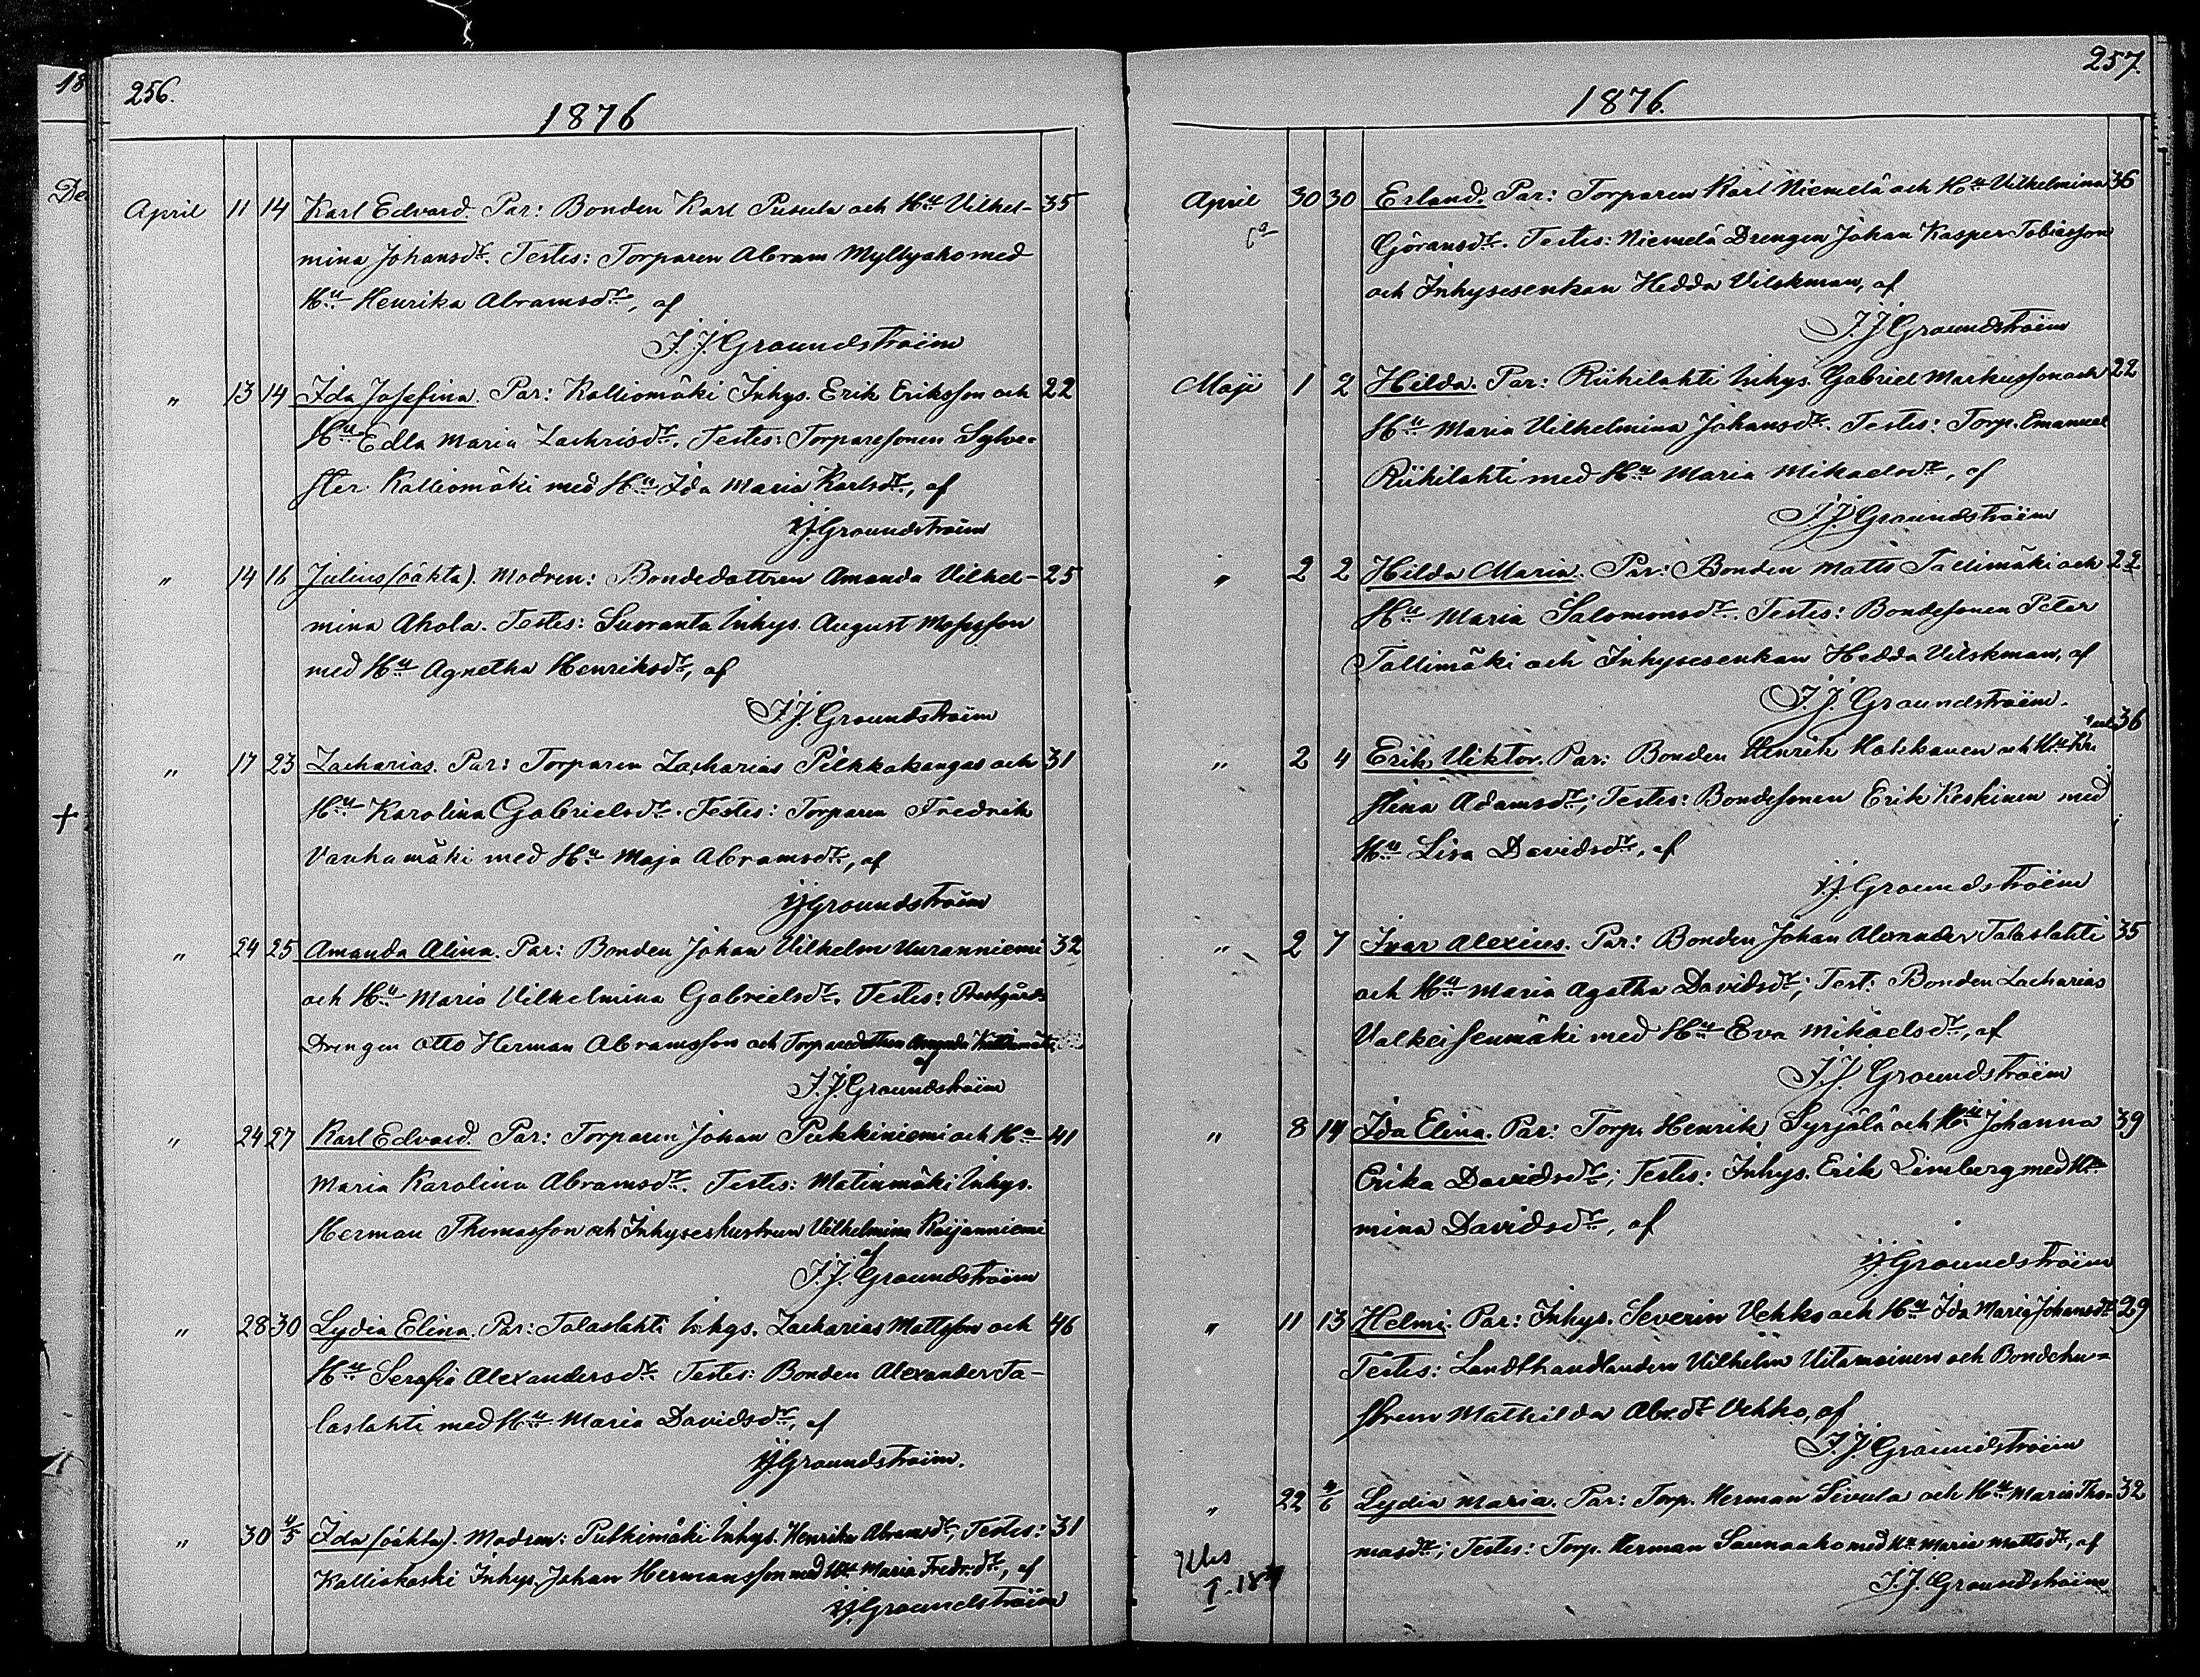 18
De
+
256.
1876
April 11 14 Karl Edvard. Par: Bonden Karl Pusula och Hu Vilhel- 35
mina Johansdr. Testes: Torparen Abram Myllyaho med
Hu Henrika Abramsdr, af
J. J. Groundstroëm
" 13 14 Ida Josefina. Par: Kalliomäki Inhys. Erik Eriksson och 22
Hu Edla Maria Zachrisdr. Testes: Torparesonen Sylve-
ster Kalliomäki med Hu Ida Maria Karlsdr, af
JJ. Groundstroëm
" 14 16 Julius (oäkta). Modren: Bondedottren Amanda Vilhel- 25
mina Ahola. Testes: Suoranta Inhys. August
med Hu Agnetha Henriksdr, af
J. J. Groundstroëm
" 17 23 Zacharias. Par: Torparen Zacharias Pilkkakangas och 31
Hu Karolina Gabrielsdr. Testes: Torparen Fredrik
Vanhamäki med Hu Maja Abramsdr, af
JJ Groundstroëm
" 24 25 Amanda Alina. Par: Bonden Johan Vilhelm Uuranniemi 32
och Hu Maria Vilhelmina Gabrielsdr. Testes: Prestgårds
Drengen Otto Herman Abramsson och Torparedottren Amanda
af
J. J. Groundstroëm
" 24 27 Karl Edvard. Par: Torparen Johan Pukkiniemi och Hu 41
Maria Karolina Abramsdr. Testes: Matinmäki Inhys.
Herman Thomasson och Inhyseshustrun Vilhelmina
af
J. J. Groundstroëm
" 28 30 Lydia Elina. Par: Talaslahti Inhys. Zacharias Mattsson och 46
Hu Serafia Alexandersdr. Testes: Bonden Alexander Ta-
laslahti med Hu Maria Davidsdr, af
JJ. Groundstroëm.
" 30 4/5 Ida (oäkta). Modren: Pulkimäki Inhys. Henrika Abramsdr, Testes: 31
Kalliokoski Inhys. Johan Hermansson med Hu Maria Fredr.dr, af
JJ. Groundstroëm
257.
1876.
April 30 30 Erland. Par: Torparen Karl Niemelä och Hu Vilhelmina 36
Göransdr. Testes: Niemelä Drengen Johan Kasper Tobiasson
och Inhysesenkan Hedda Vilskman, af
J. J. Groundstroëm
Maji 1 2 Hilda. Par: Riihilahti Inhys. Gabriel Markusson och 22
Hu Maria Vilhelmina Johansdr. Testes: Torp. Emanuel
Riihilahti med Hu Maria Mikaelsdr, af
J. J. Groundstroëm
" 2 2 Hilda Maria. Par: Bonden Matts Tallimäki och 22
Hu Maria Salomonsdr. Testes: Bondesonen Peter
Tallimäki och Inhysesenkan Hedda Vilskman, af
J. J. Groundstroëm.
" 2 4 Erik Viktor. Par: Bonden Henrik och Hu Kri- 36
stina Adamsdr; Testes: Bondesonen Erik Keskinen med
Hu Lisa Davidsdr, af
JJ. Groundstroëm
" 2 7 Ivar Alexius. Par: Bonden Johan Alexander Talaslahti 35
och Hu Maria Agatha Davidsdr; Test: Bonden Zacharias
Valkeisenmäki med Hu Eva Mikaelsdr, af
J. J. Groundstroëm
" 8 14 Ida Elina. Par: Torp. Henrik Syrjälä och Hu Johanna 39
Erika Davidsdr; Testes: Inhys. Erik Limberg med Hu
mina Davidsdr, af
JJ. Groundstroëm
" 11 13 Helmi. Par: Inhys. Severin Vehko och Hu Ida Maria Johansdr 29
Testes: Landthandlanden Vilhelm Uitamoinen och Bondehu-
strun Mathilda Abr.dr Vehko, af
J. J. Groundstroëm
" 22 4/6 Lydia Maria. Par: Torp. Herman Sivula och Hu Maria Tho- 32
masdr; Testes: Torp. Herman Saunaaho med Hu Maria Mattsdr, af
J. J. Groundstroëm